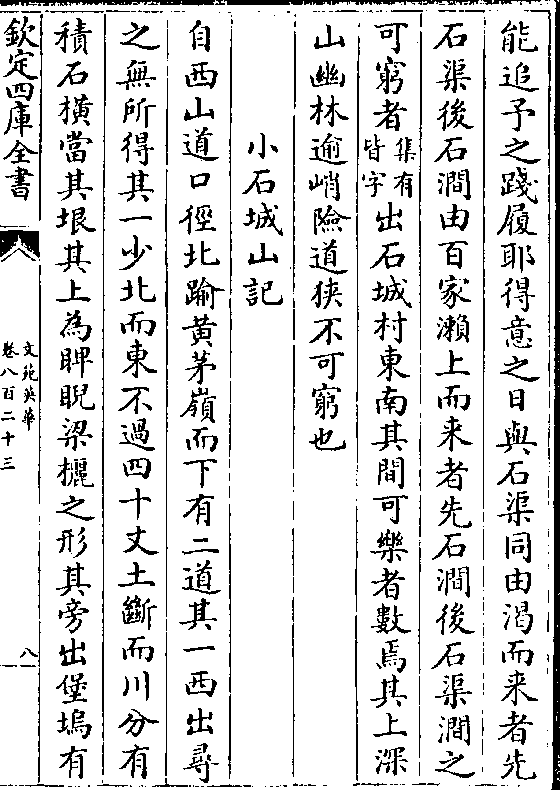 能追予之踐履耶得意之日與石渠同由渴而来者先
石渠後石澗由百家瀨上而来者先石澗後石渠澗之
可窮者集有皆字出石城村東南其間可樂者數焉其上深
山幽林逾峭險道狹不可窮也
小石城山記
自西山道口徑北踰黄茅嶺而下有二道其一西出尋
之無所得其一少北而東不過四十丈土斷而川分有
積石橫當其垠其上為睥睨梁欐之形其旁出堡塢有
欽定四庫全書
文苑英華
卷八百二十三
八